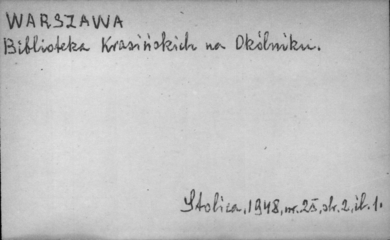 WARSZAWA
Biblioteka Krasińskich na Okólniku.
Stolica, 1948, nr. 25, str. 2, il. 1.